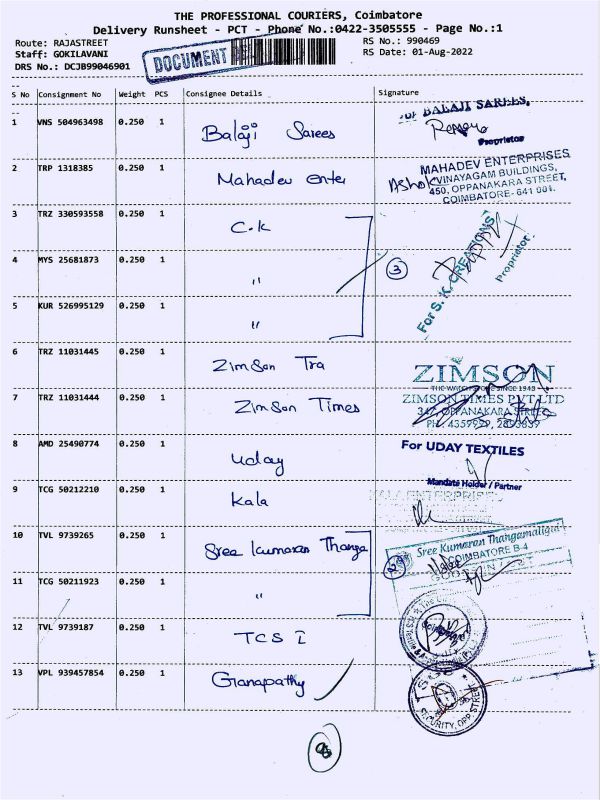 THE PROFESSIONAL COURIERS, Coimbatore
Delivery Runsheet - PCT - Phone No.:0422-3505555 - Page No.:1
Route: RAJASTREET RS No.: 990469
Staff: GOKILAVANI RS Date: 01-Aug-2022
DRS No.: DCJB99046901
DOCUMENT
S No Consignment No Weight PCS Consignee Details Signature
1 VNS 504963498 0.250 1 Balaji Sarees
For BALAJI SAREES,
Proprietor
2 TRP 1318385 0.250 1 Mahadev Enter
MAHADEV ENTERPRISES
Ashok VINAYAGAM BUILDINGS,
450, OPPANAKARA STREET,
COIMBATORE- 641 001.
3 TRZ 330593558 0.250 1 C.K
4 MYS 25681873 0.250 1 "
3
For S. K. CREATIONS
Proprietor
5 KUR 526995129 0.250 1 "
6 TRZ 11031445 0.250 1 Zimson Tra
ZIMSON
THE WATCH STORE SINCE 1948
7 TRZ 11031444 0.250 1 Zimson Times
ZIMSON TIMES PVT LTD
347, OPPANAKARA STREET
8 AMD 25490774 0.250 1 Uday
For UDAY TEXTILES
Mandate Holder / Partner
9 TCG 50212210 0.250 1 Kala
KALA ENTERPRISES
10 TVL 9739265 0.250 1 Sree Kumaran Thanga
Sree Kumaran Thangamaligai
COIMBATORE
11 TCG 50211923 0.250 1 "
12 TVL 9739187 0.250 1 TCS I
13 VPL 939457854 0.250 1 Ganapathy
SECURITY, OPP. STREET